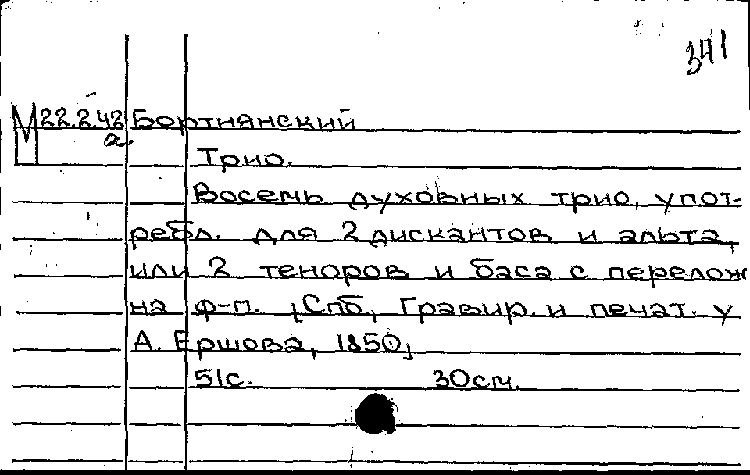 341
М 22.2.42 Бортнянский
а.
Трио.
Восемь духовных трио, упот-
ребл. для 2 дискантов и альта,
или 2 теноров и баса с перелож
на ф-п. [Спб, Гравир. и печат. у
А. Ершова, 1850]
51с. 30см.